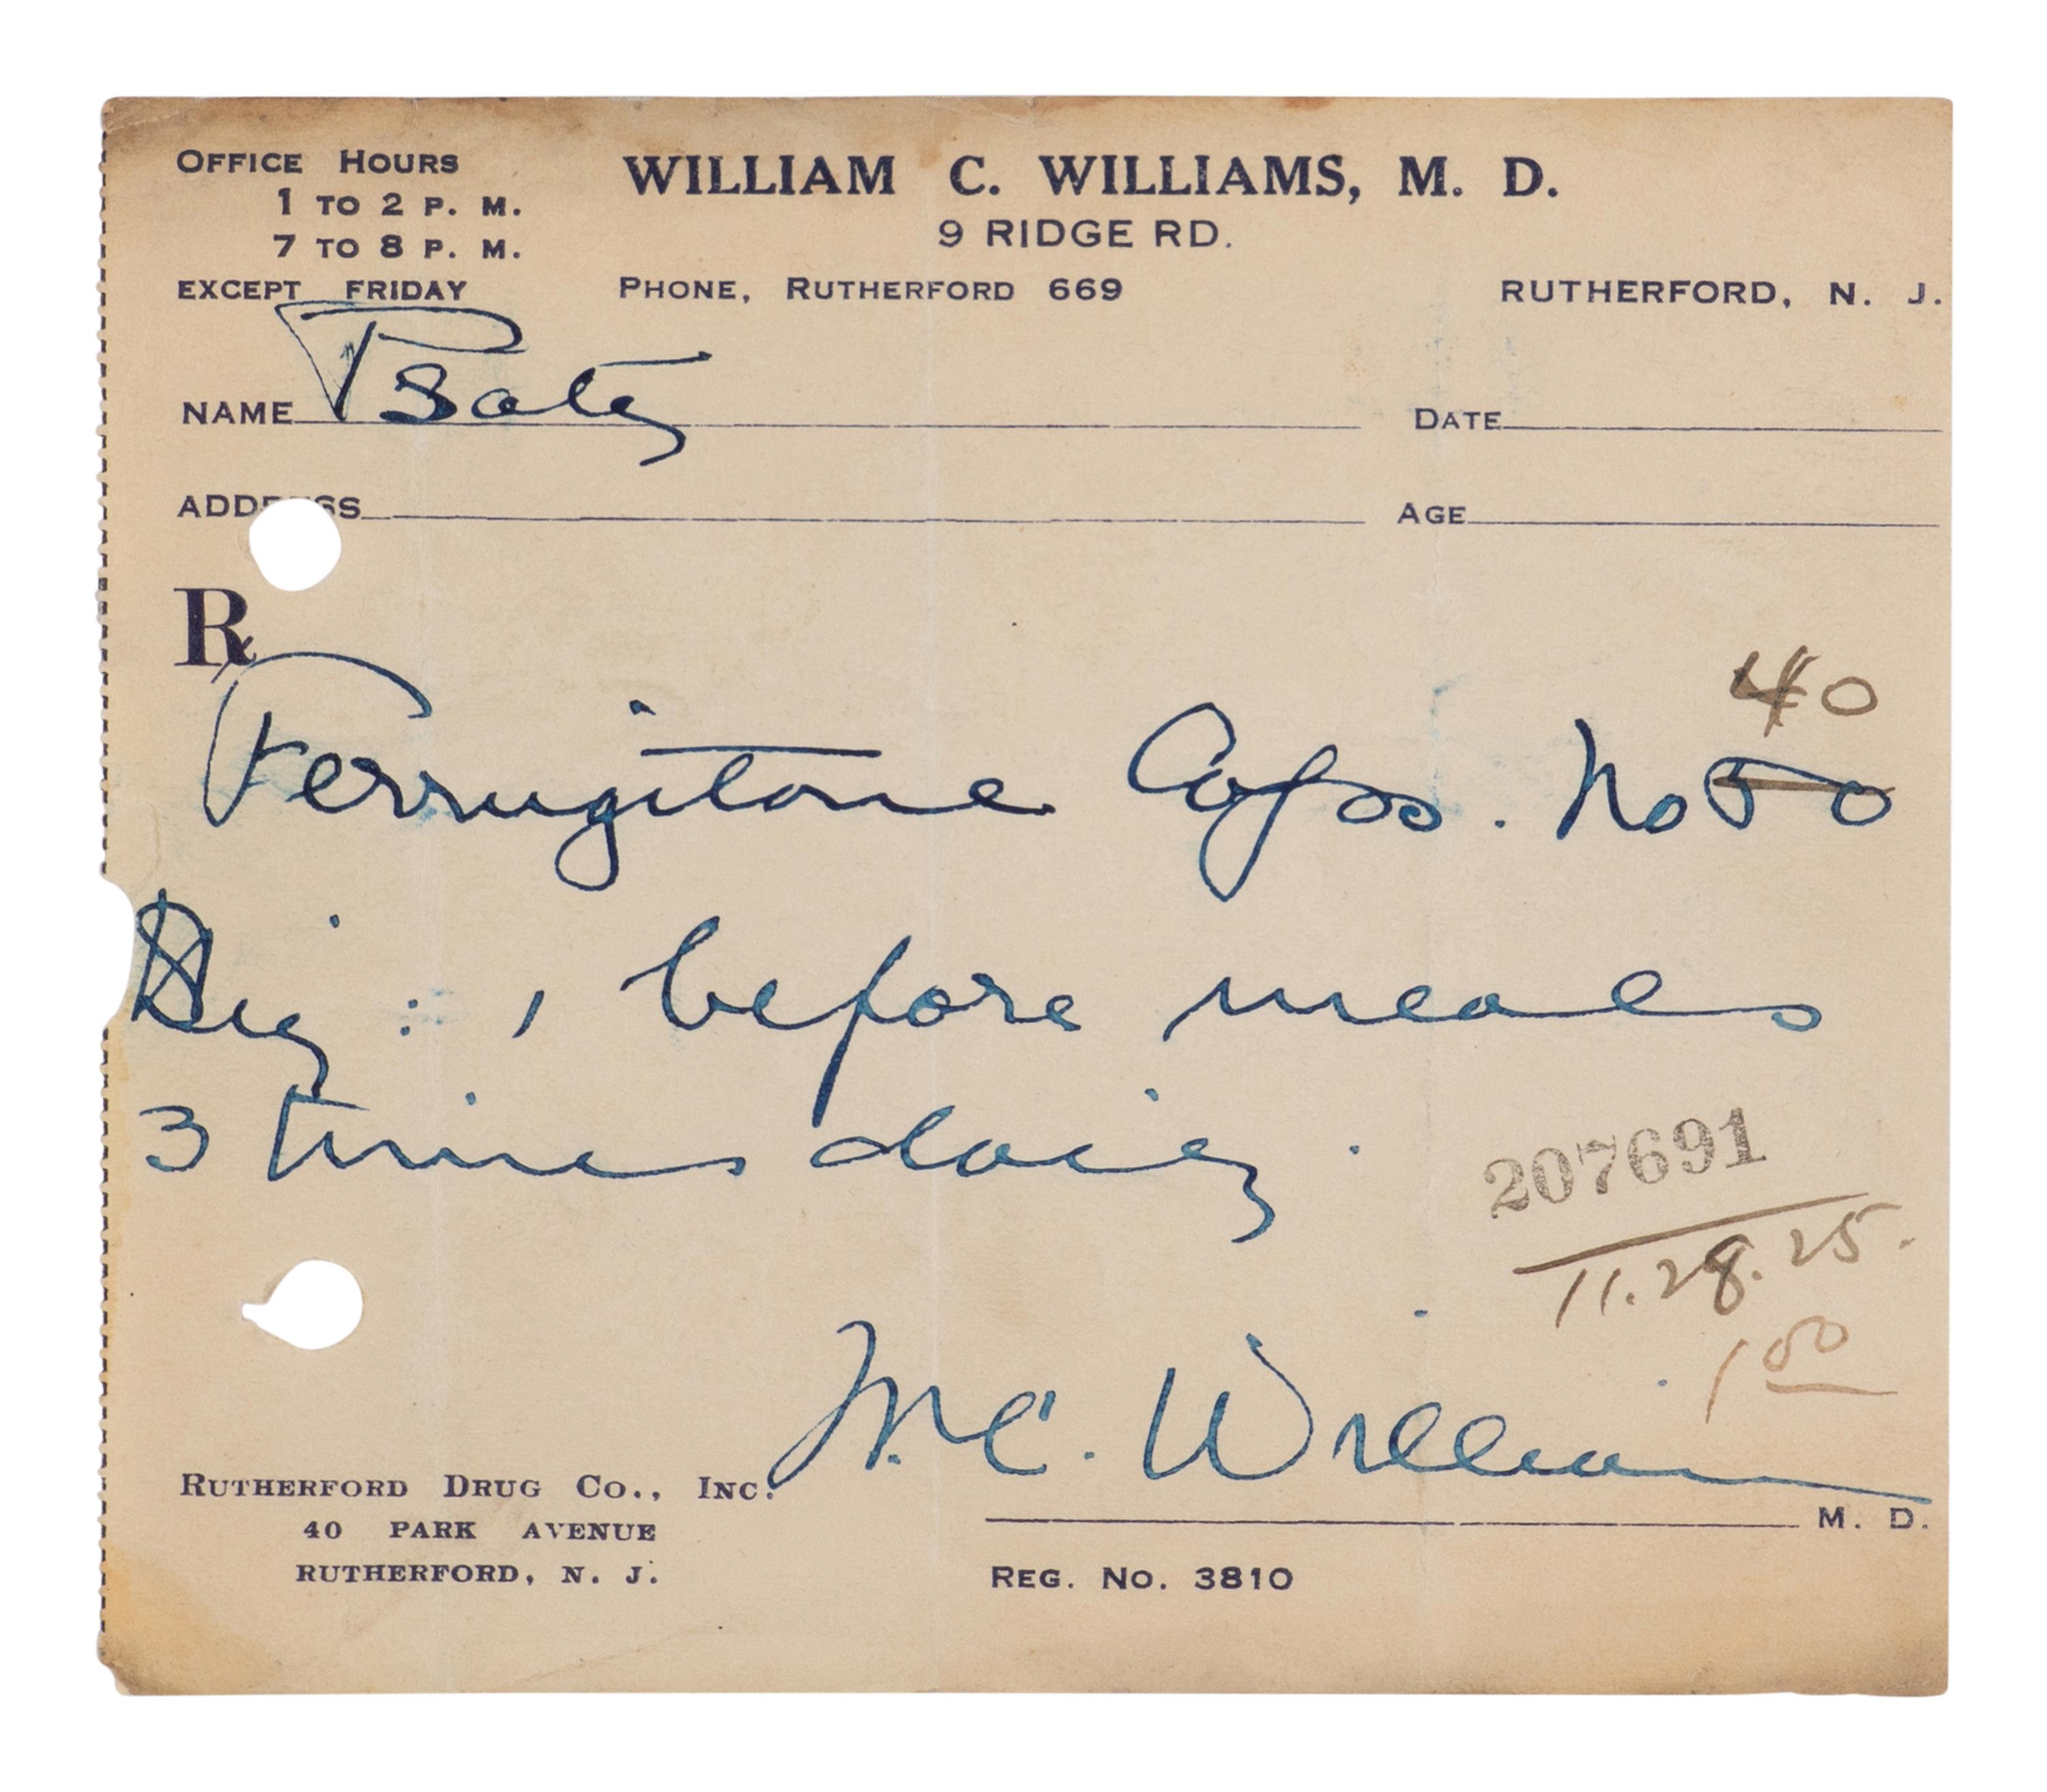 OFFICE HOURS
1 TO 2 P. M.
7 TO 8 P. M.
EXCEPT FRIDAY
WILLIAM C. WILLIAMS, M. D.
9 RIDGE RD.
PHONE, RUTHERFORD 669
RUTHERFORD, N. J.
NAME
DATE
ADDRESS
AGE
R
40
Ferrugitone Caps. No 50
Sig : 1 before meals
3 times daily.
207691
11.28.25.
1 00
W. C. Williams
M. D.
RUTHERFORD DRUG CO., INC.
40 PARK AVENUE
RUTHERFORD, N. J.
REG. NO. 3810